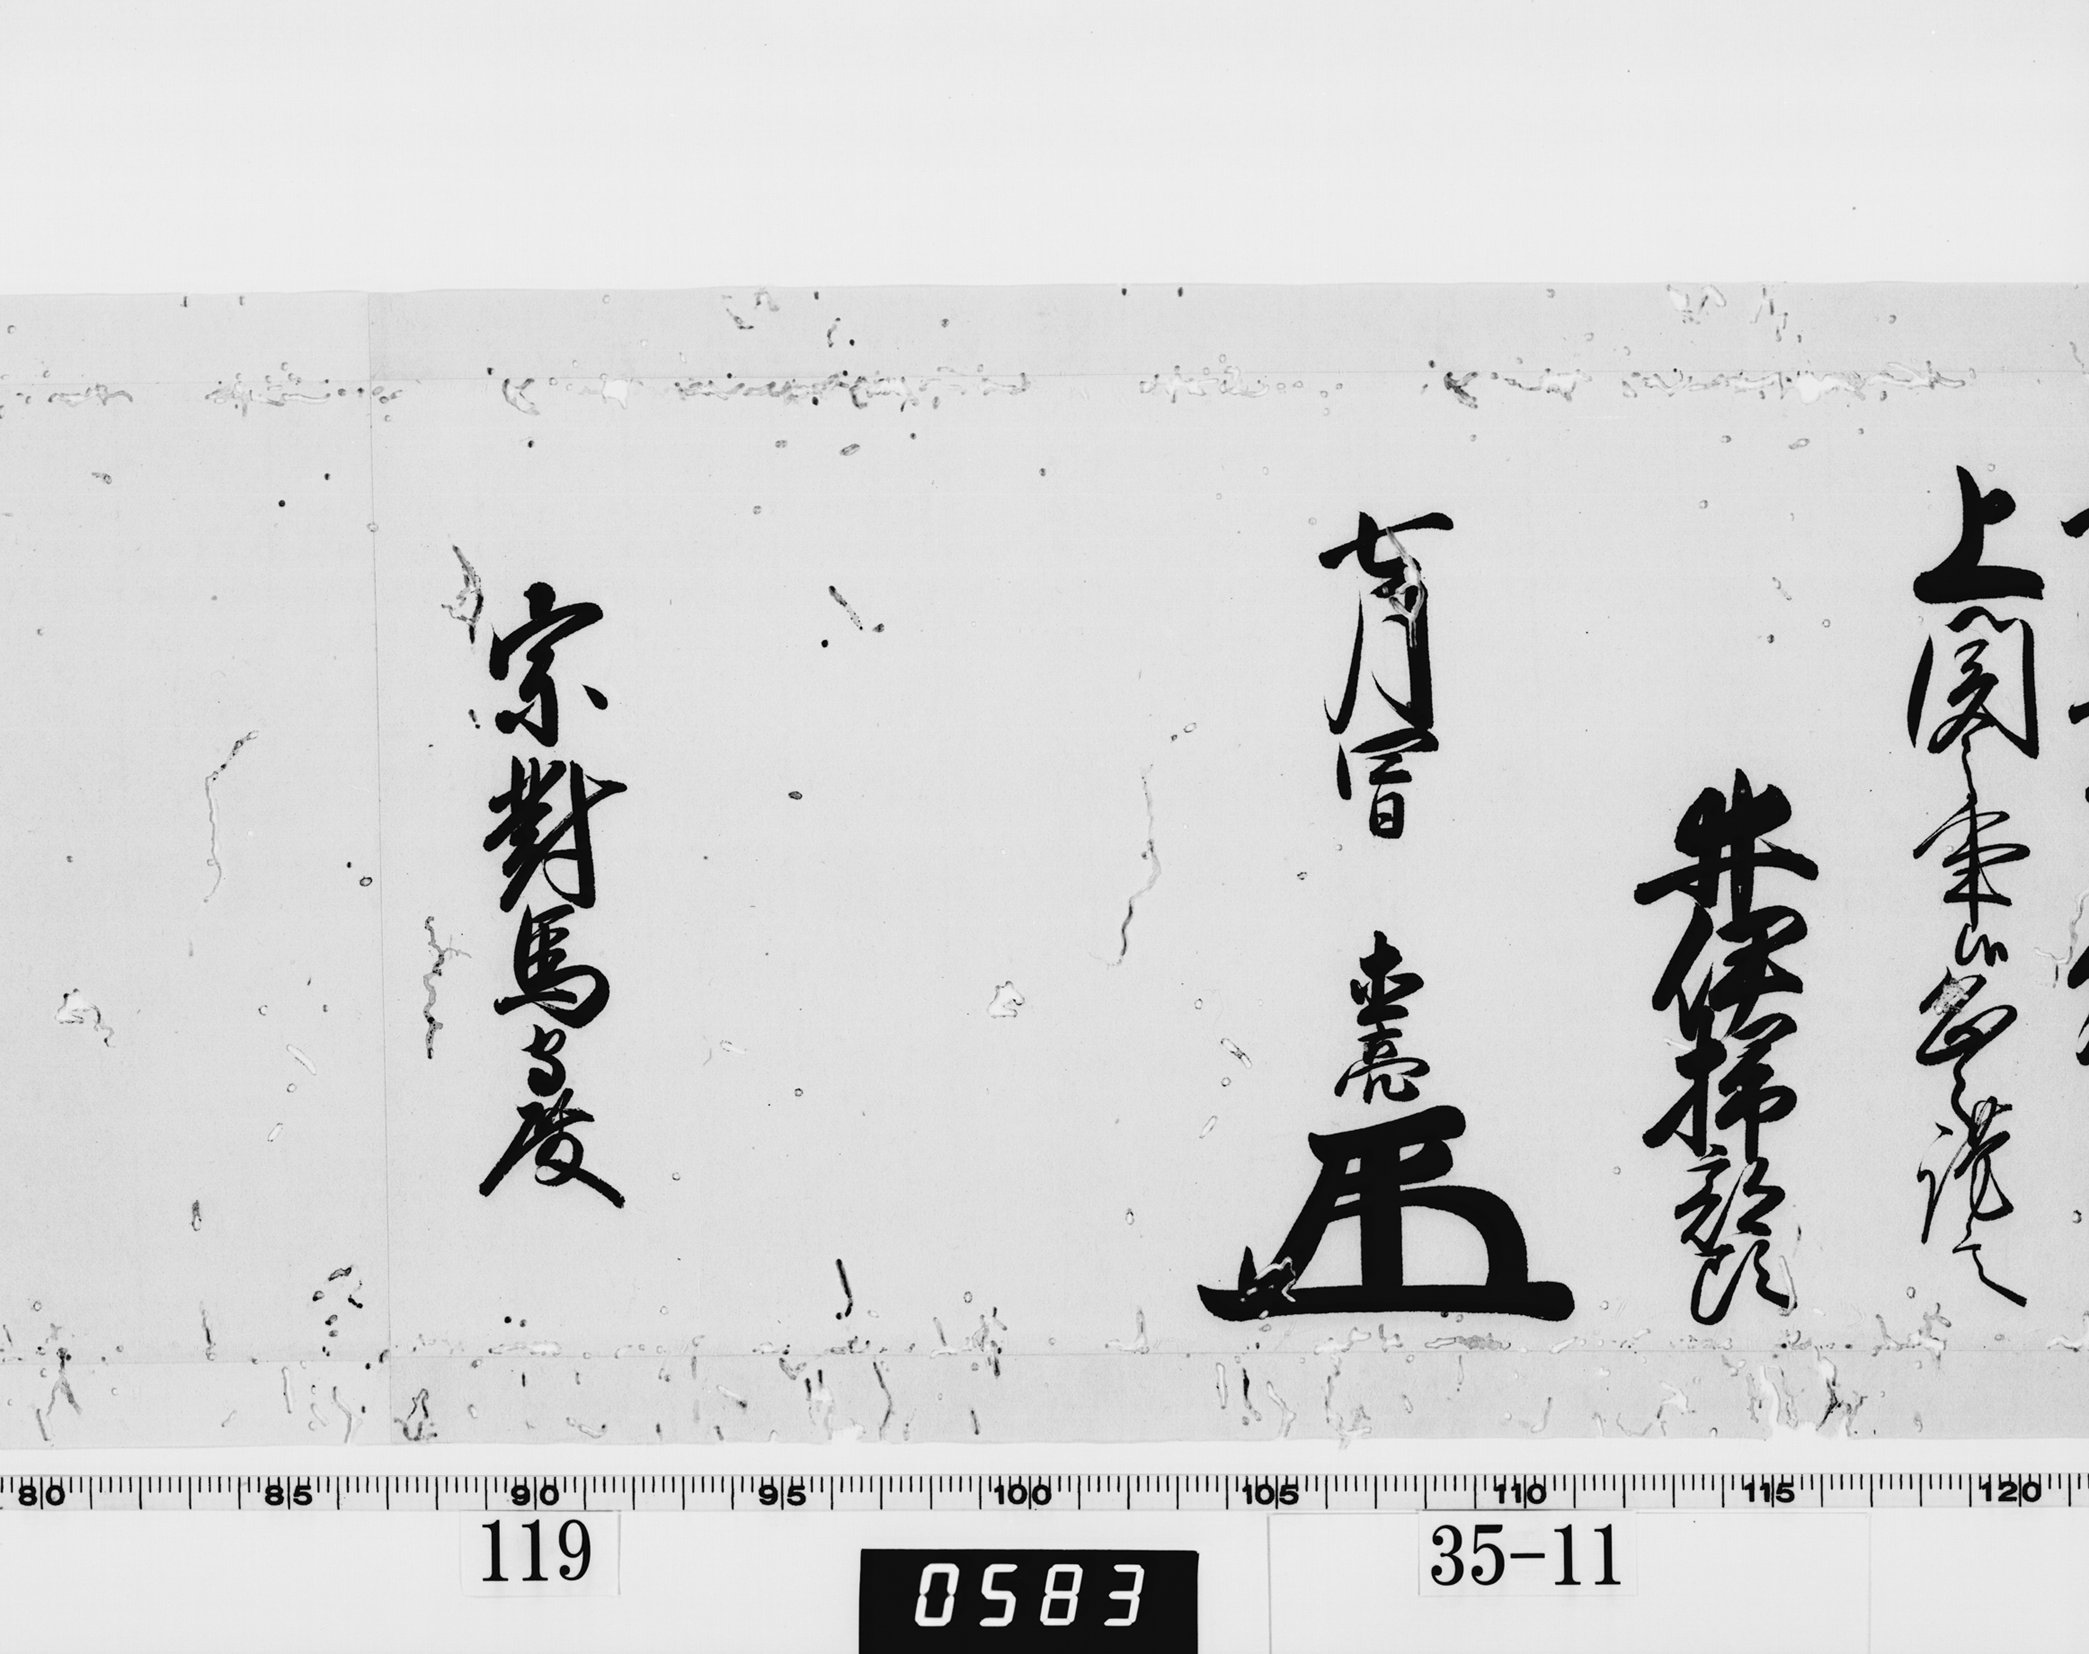 上聞候恐々謹言
井伊掃部頭
七月四日 直亮
宗對馬守殿
80 85 90 95 100 105 110 115 120
119
0583
35-11